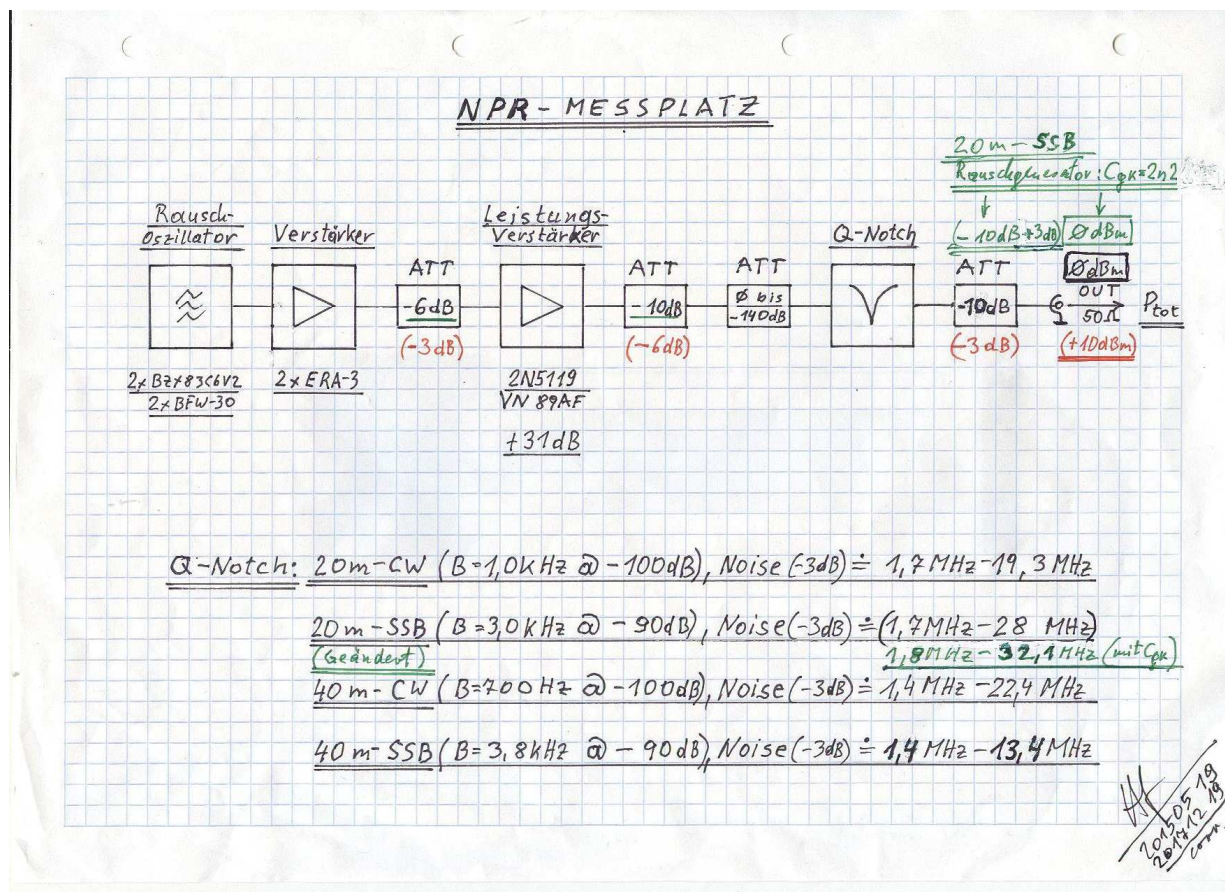 NPR - MESSPLATZ
20m - SSB
Rauschgenerator: Cgk=2n2
(-10dB+3dB) ØdBm
Rausch-
Oszillator
Verstärker
Leistungs-
Verstärker
Q-Notch
ATT
-6dB
(-3dB)
ATT
-10dB
(-6dB)
ATT
Ø bis
-140dB
ATT
-10dB
(-3dB)
ØdBm
OUT
50Ω
(+10dBm)
Ptot
2xBZX83C6V2
2xBFW-30
2xERA-3
2N5119
VN 89AF
+31dB
Q-Notch: 20m-CW (B=1,0kHz @ -100dB), Noise (-3dB) ≐ 1,7MHz-19,3MHz
20m-SSB (B=3,0kHz @ -90dB), Noise (-3dB) ≐ (1,7MHz-28 MHz)
(Geändert) 1,8MHz-32,1MHz (mit Cgk)
40m-CW (B=700Hz @ -100dB), Noise (-3dB) ≐ 1,4MHz-22,4MHz
40m-SSB (B=3,8kHz @ -90dB), Noise (-3dB) ≐ 1,4MHz-13,4MHz
20150519
20171219